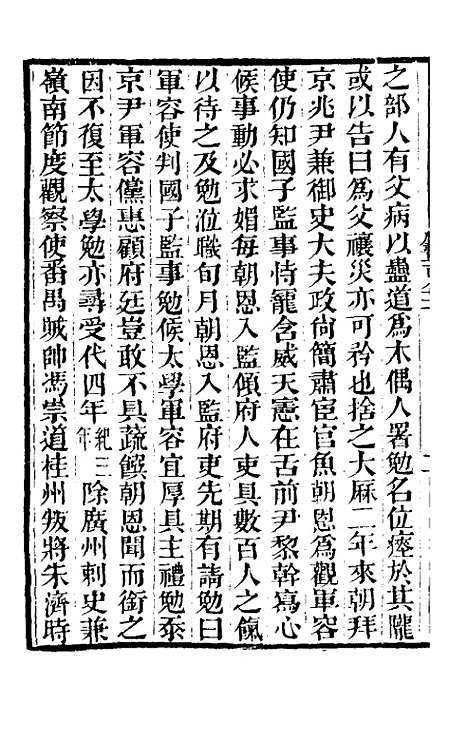 之部人有父病以蠱道爲木偶人署勉名位瘞於其隴
或以告曰爲父禳災亦可矜也捨之大厤二年來朝拜
京兆尹兼御史大夫政尙簡肅宦官魚朝恩爲觀軍容
使仍知國子監事恃寵含威天憲在舌前尹黎幹寫心
候事動必求媚每朝恩入監傾府人吏具數百人之餼
以待之及勉涖職旬月朝恩入監府吏先期有請勉曰
軍容使判國子監事勉候太學軍容宜厚具主禮勉忝
京尹軍容儻惠顧府廷豈敢不具蔬饌朝恩聞而銜之
因不復至太學勉亦尋受代四年紀三年除廣州刺史兼
嶺南節度觀察使番禺賊帥馮崇道桂州叛將朱濟時